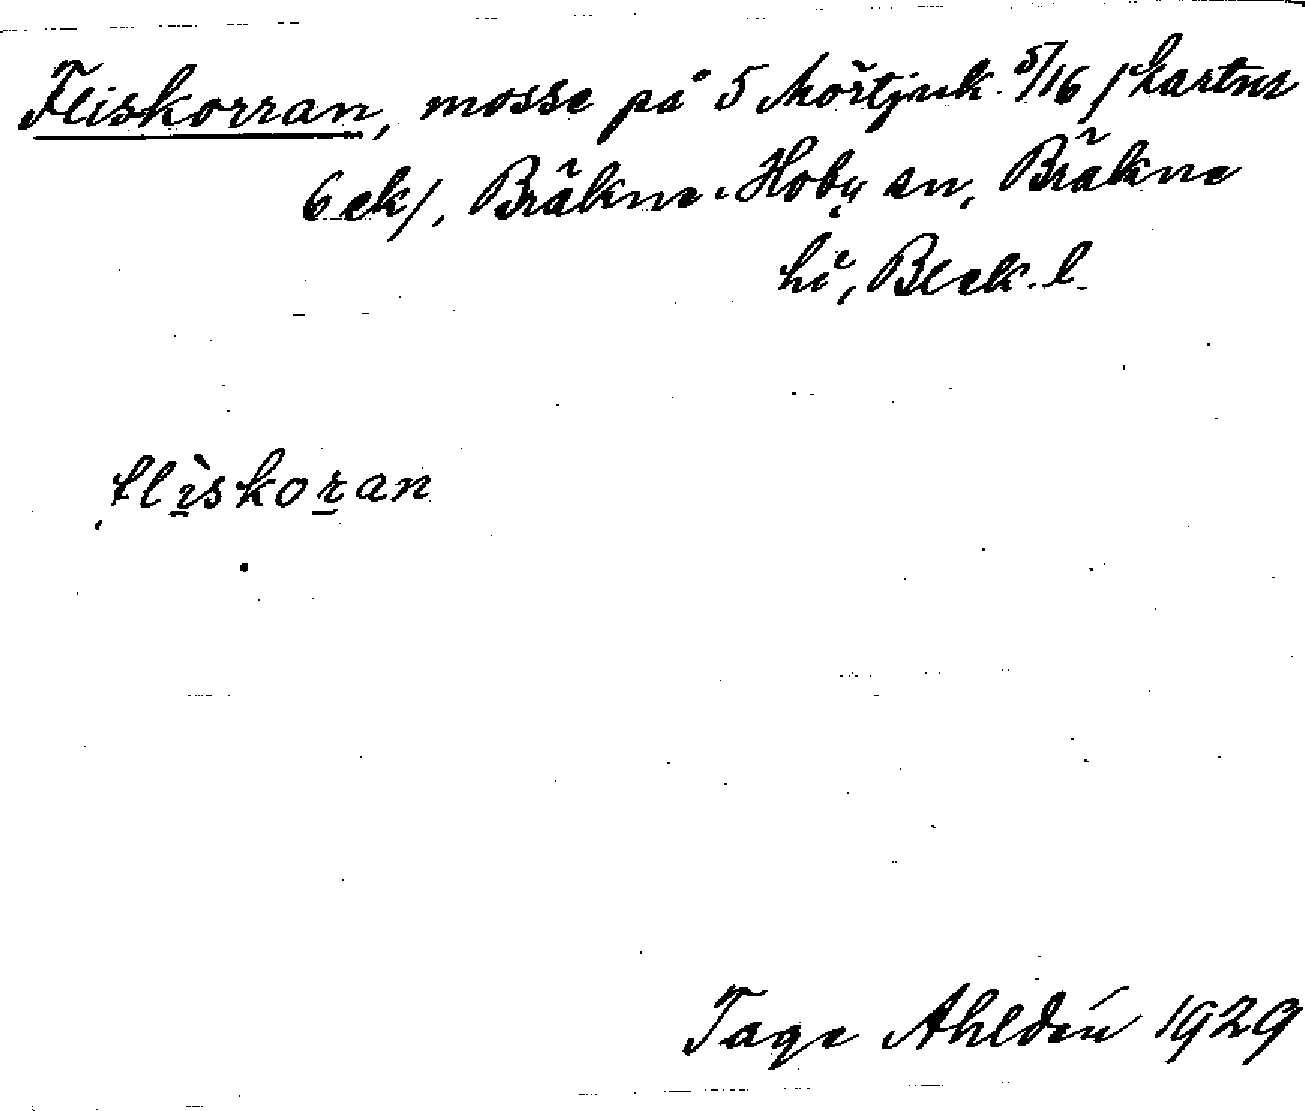 Fliskorran, mosse på 5 Mörtjuk 5/16 /kartns
6 ek/, Bräkne-Hoby sn, Bräkne
hd, Blek. l.
flìskoran
Tage Ahldén 1929